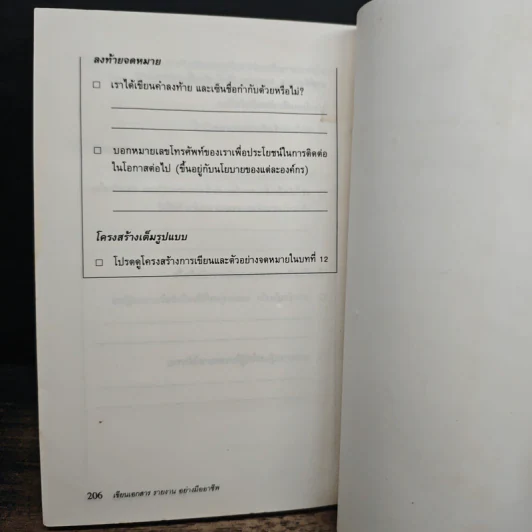 ลงท้ายจดหมาย
□ เราได้เขียนคำลงท้าย และเซ็นชื่อกำกับด้วยหรือไม่?
□ บอกหมายเลขโทรศัพท์ของเราเพื่อประโยชน์ในการติดต่อ
ในโอกาสต่อไป (ขึ้นอยู่กับนโยบายของแต่ละองค์กร)
โครงสร้างเต็มรูปแบบ
□ โปรดดูโครงสร้างการเขียนและตัวอย่างจดหมายในบทที่ 12
206 เขียนเอกสาร รายงาน อย่างมืออาชีพ